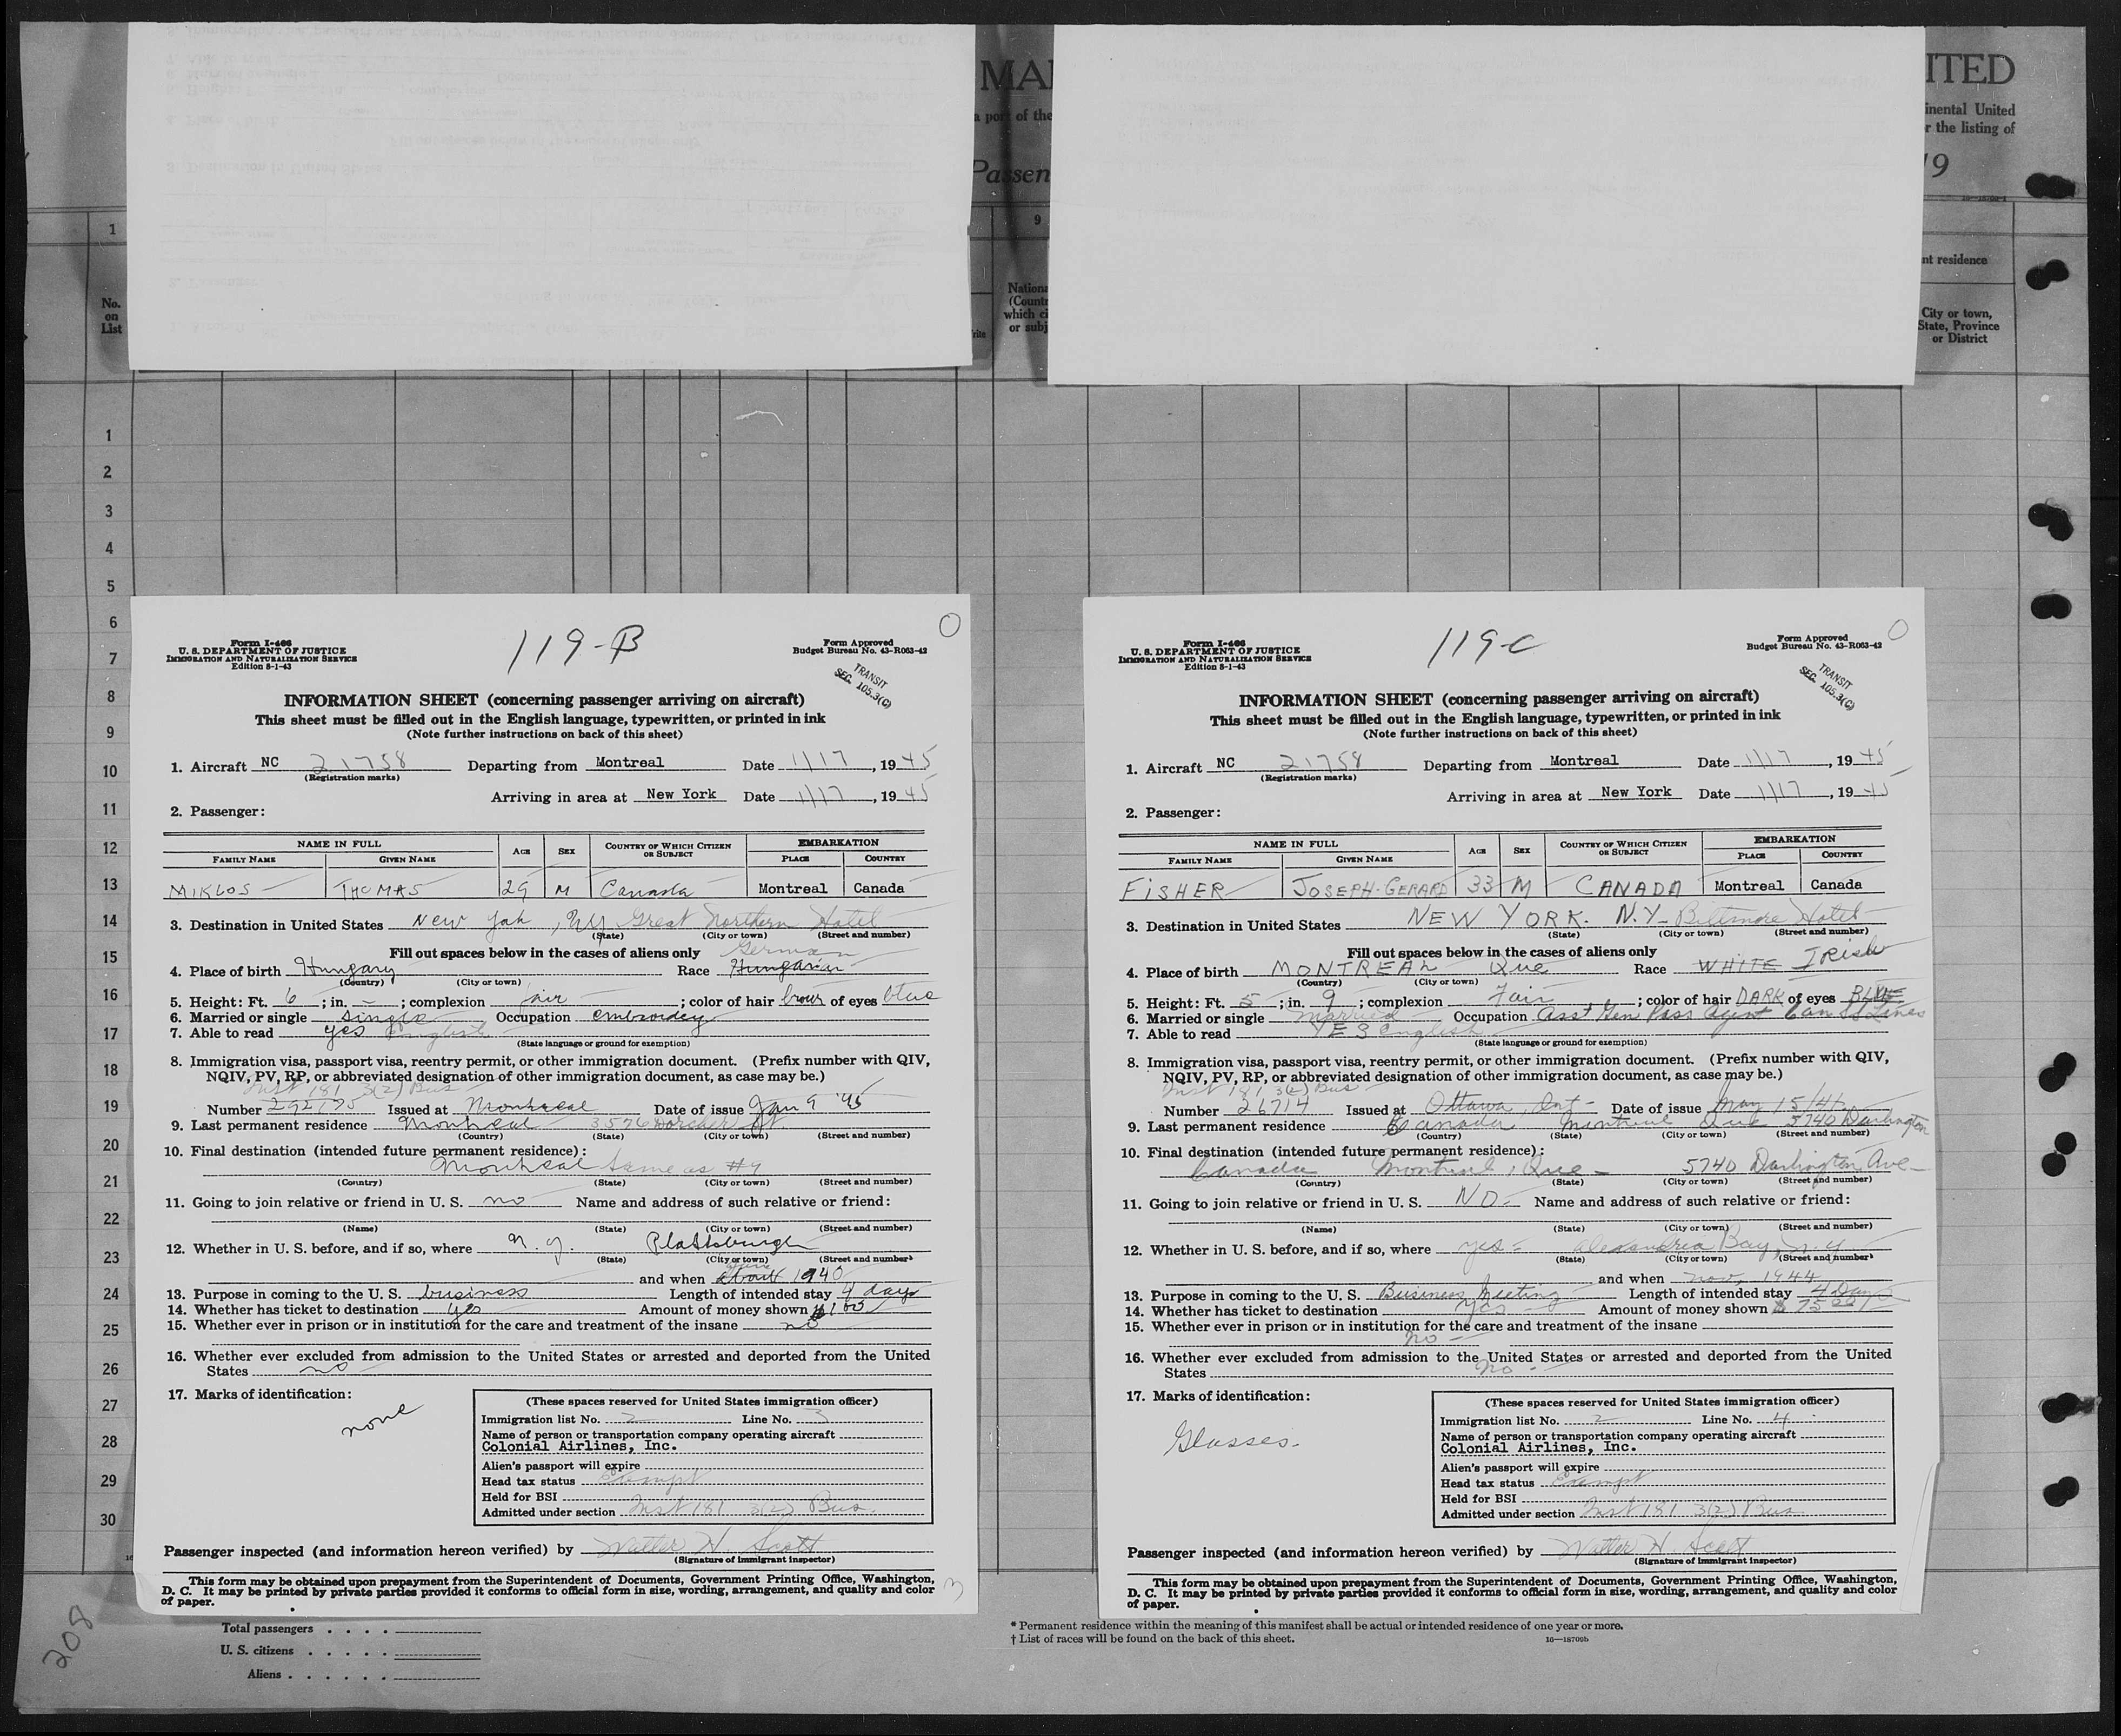 MA
ITED
a port of the
inental United
r the listing of
Passen
19
1
9
nt residence
No.
on
List
Nationa
(Countr
which ci
or subj
City or town,
State, Province
or District
1
2
3
4
5
6
7
8
9
10
11
12
13
14
15
16
17
18
19
20
21
22
23
24
25
26
27
28
29
30
Form I-466
U. S. DEPARTMENT OF JUSTICE
IMMIGRATION AND NATURALIZATION SERVICE
Edition 8-1-43
119-B
Form Approved
Budget Bureau No. 43-R063-42
TRANSIT
SEC. 105.3(C)
INFORMATION SHEET (concerning passenger arriving on aircraft)
This sheet must be filled out in the English language, typewritten, or printed in ink
(Note further instructions on back of this sheet)
1. Aircraft NC 21758 Departing from Montreal Date 1/17, 1945
(Registration marks)
Arriving in area at New York Date 1/17, 1945
2. Passenger:
NAME IN FULL AGE SEX COUNTRY OF WHICH CITIZEN OR SUBJECT EMBARKATION
FAMILY NAME GIVEN NAME PLACE COUNTRY
MIKLOS THOMAS 29 M Canada Montreal Canada
3. Destination in United States New York, NY Great Northern Hotel
(State) (City or town) (Street and number)
Fill out spaces below in the cases of aliens only German
4. Place of birth Hungary Race Hungarian
(Country) (City or town)
5. Height: Ft. 6; in. -; complexion fair; color of hair brown of eyes blue
6. Married or single single Occupation embroidery
7. Able to read yes English
(State language or ground for exemption)
8. Immigration visa, passport visa, reentry permit, or other immigration document. (Prefix number with QIV,
NQIV, PV, RP, or abbreviated designation of other immigration document, as case may be.)
Inst 181 3(2) Bus
Number 292175 Issued at Montreal Date of issue Jan 9 '45
9. Last permanent residence Montreal 3576 Dorchester St
(Country) (State) (City or town) (Street and number)
10. Final destination (intended future permanent residence):
Montreal Same as #9
(Country) (State) (City or town) (Street and number)
11. Going to join relative or friend in U. S. no Name and address of such relative or friend:
(Name) (State) (City or town) (Street and number)
12. Whether in U. S. before, and if so, where N. Y. Plattsburgh
(State) (City or town) (Street and number)
and when about 1940
13. Purpose in coming to the U. S. business Length of intended stay 4 days
14. Whether has ticket to destination yes Amount of money shown $100
15. Whether ever in prison or in institution for the care and treatment of the insane no
16. Whether ever excluded from admission to the United States or arrested and deported from the United
States no
17. Marks of identification:
none
(These spaces reserved for United States immigration officer)
Immigration list No. 2 Line No. 3
Name of person or transportation company operating aircraft
Colonial Airlines, Inc.
Alien's passport will expire
Head tax status Exempt
Held for BSI
Admitted under section Inst 181 3(2) Bus.
Passenger inspected (and information hereon verified) by Walter H. Scott
(Signature of immigrant inspector)
This form may be obtained upon prepayment from the Superintendent of Documents, Government Printing Office, Washington,
D. C. It may be printed by private parties provided it conforms to official form in size, wording, arrangement, and quality and color
of paper.
3
Form I-466
U. S. DEPARTMENT OF JUSTICE
IMMIGRATION AND NATURALIZATION SERVICE
Edition 8-1-43
119-C
Form Approved
Budget Bureau No. 43-R063-42
TRANSIT
SEC. 105.3(C)
INFORMATION SHEET (concerning passenger arriving on aircraft)
This sheet must be filled out in the English language, typewritten, or printed in ink
(Note further instructions on back of this sheet)
1. Aircraft NC 21758 Departing from Montreal Date 1/17, 1945
(Registration marks)
Arriving in area at New York Date 1/17, 1945
2. Passenger:
NAME IN FULL AGE SEX COUNTRY OF WHICH CITIZEN OR SUBJECT EMBARKATION
FAMILY NAME GIVEN NAME PLACE COUNTRY
FISHER JOSEPH-GERARD 33 M CANADA Montreal Canada
3. Destination in United States NEW YORK. N.Y- Biltmore Hotel
(State) (City or town) (Street and number)
Fill out spaces below in the cases of aliens only
4. Place of birth MONTREAL Que Race WHITE IRish
(Country) (City or town)
5. Height: Ft. 5; in. 9; complexion Fair; color of hair DARK of eyes BLUE
6. Married or single married Occupation Asst Gen Pass Agent Can SS Lines
7. Able to read YES English
(State language or ground for exemption)
8. Immigration visa, passport visa, reentry permit, or other immigration document. (Prefix number with QIV,
NQIV, PV, RP, or abbreviated designation of other immigration document, as case may be.)
Inst 181 3(2) Bus
Number 26714 Issued at Ottawa, Ont- Date of issue May 15/41
9. Last permanent residence Canada Montreal Que 5740 Darlington
(Country) (State) (City or town) (Street and number)
10. Final destination (intended future permanent residence):
Canada Montreal, Que- 5740 Darlington Ave-
(Country) (State) (City or town) (Street and number)
11. Going to join relative or friend in U. S. NO- Name and address of such relative or friend:
(Name) (State) (City or town) (Street and number)
12. Whether in U. S. before, and if so, where yes- Alexandria Bay, N.Y
(State) (City or town) (Street and number)
and when Nov, 1944
13. Purpose in coming to the U. S. Business Meeting Length of intended stay 4 Days
14. Whether has ticket to destination Yes Amount of money shown $75.00
15. Whether ever in prison or in institution for the care and treatment of the insane
No-
16. Whether ever excluded from admission to the United States or arrested and deported from the United
States No-
17. Marks of identification:
Glasses.
(These spaces reserved for United States immigration officer)
Immigration list No. 2 Line No. 4
Name of person or transportation company operating aircraft
Colonial Airlines, Inc.
Alien's passport will expire
Head tax status Exempt
Held for BSI
Admitted under section Inst 181 3(2) Bus
Passenger inspected (and information hereon verified) by Walter H. Scott
(Signature of immigrant inspector)
This form may be obtained upon prepayment from the Superintendent of Documents, Government Printing Office, Washington,
D. C. It may be printed by private parties provided it conforms to official form in size, wording, arrangement, and quality and color
of paper.
208
Total passengers . . . .
U. S. citizens . . . . .
Aliens . . . . . .
* Permanent residence within the meaning of this manifest shall be actual or intended residence of one year or more.
† List of races will be found on the back of this sheet.
16—18709b